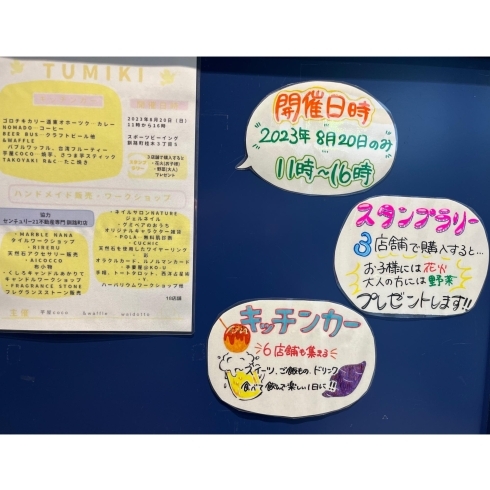 TUMIKI
ゴロチキカリー道東オホーツク・カレー
NOMADO・コーヒー
BEER BUS・クラフトビール他
&WAFFLE
バブルワッフル、台湾フルーティー
芋屋COCO・焼芋、さつま芋スティック
TAKOYAKI R&C・たこ焼き
2023年8月20日(日)
11時から16時
スポーツビーイング
釧路町桂木3丁目5
3店舗で購入すると
・花火(お子様)
・野菜(大人)
プレゼント
ハンドメイド販売・ワークショップ
協力
センチュリー21不動産専門 釧路町店
・MARBLE NANA
タイルワークショップ
・NINERU
天然石アクセサリー販売
・AICOCCO
布小物
・くしろキャンドルあかりて
キャンドルワークショップ
・FRAGRANCE STONE
フレグランスストーン販売
・ネイルサロンNATURE
ジェルネイル
・ゲミベアのおうち
オリジナルキャラクター雑貨
・POLA・無料肌診断
・CUCHIC
天然石を使用したワイヤーリング
オラクルカード、ルノルマンカード
・手相、タロットカード、西洋占星術
・Y
ハーバリウムワークショップ他
10店舗
主催
芋屋coco &waffle
開催日時
2023年8月20日のみ
11時~16時
スタンプラリー
3店舗で購入すると…
お子様には花火
大人の方には野菜
プレゼントします!!
キッチンカー
6店舗も集まる
スイーツ、ご飯もの、ドリンク
食べて飲んで楽しい1日に!!